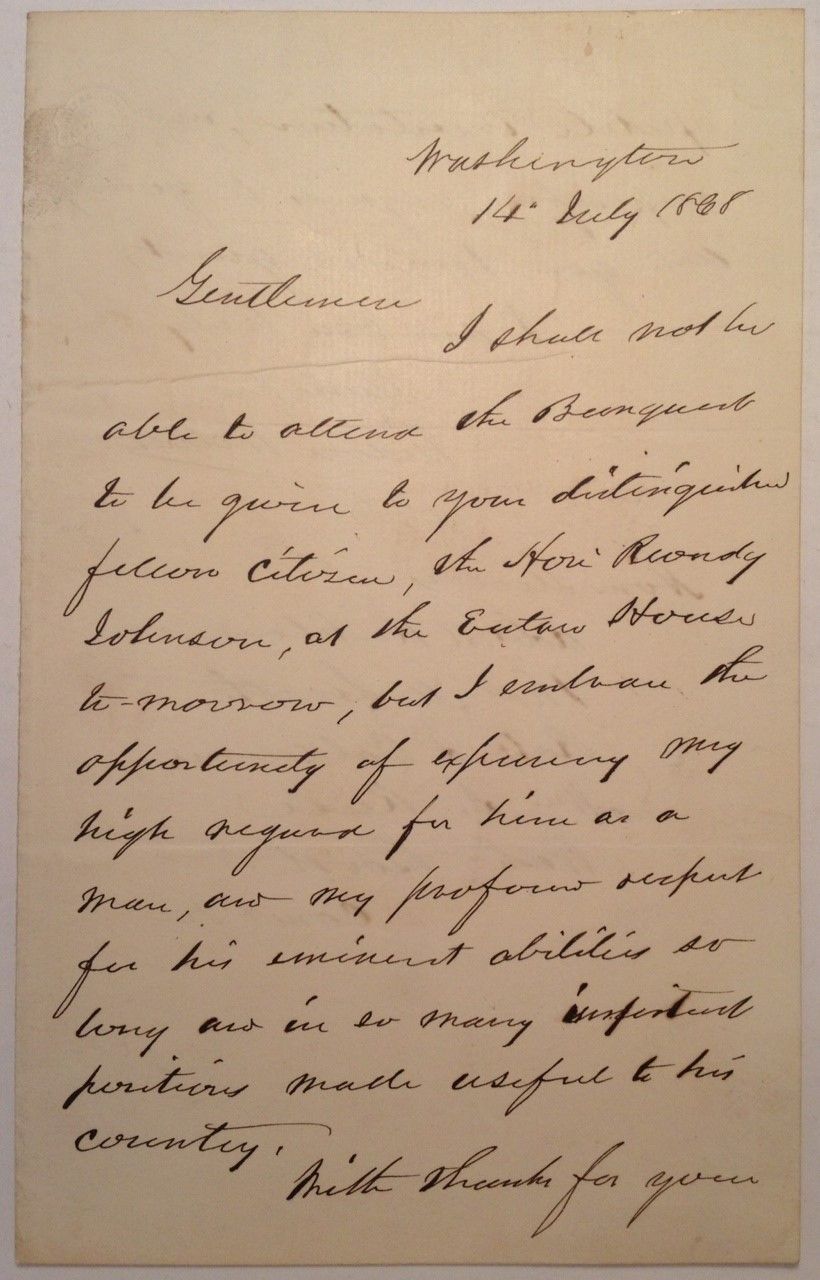 Washington
14" July 1868
Gentlemen
I shall not be
able to attend the Banquet
to be given to your distinguished
fellow citizen, the Hon: Reverdy
Johnson, at the Eutaw House
to-morrow, but I embrace the
opportunity of expressing my
high regard for him as a
man, and my profound respect
for his eminent abilities so
long and in so many important
positions made useful to his
country.
With thanks for your